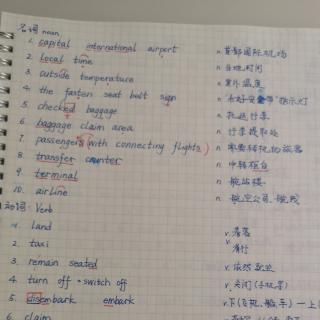 名词 noun
1. capital international airport n. 首都国际机场
2. local time n. 当地时间
3. outside temperature n. 室外温度
4. the fasten seat belt sign n. "系好安全带"指示灯
5. checked baggage n. 托运行李
6. baggage claim area n. 行李提取处
7. passengers (with connecting flights) n. 需要转机的旅客
8. transfer counter n. 中转柜台
9. terminal n. 航站楼
10. airline n. 航空公司、航线
动词 Verb
1. land v. 着落
2. taxi v. 滑行
3. remain seated v. 依然就坐
4. turn off = switch off v. 关闭(手机等)
5. disembark embark v. 下(飞机、船、车)-上(
6. claim